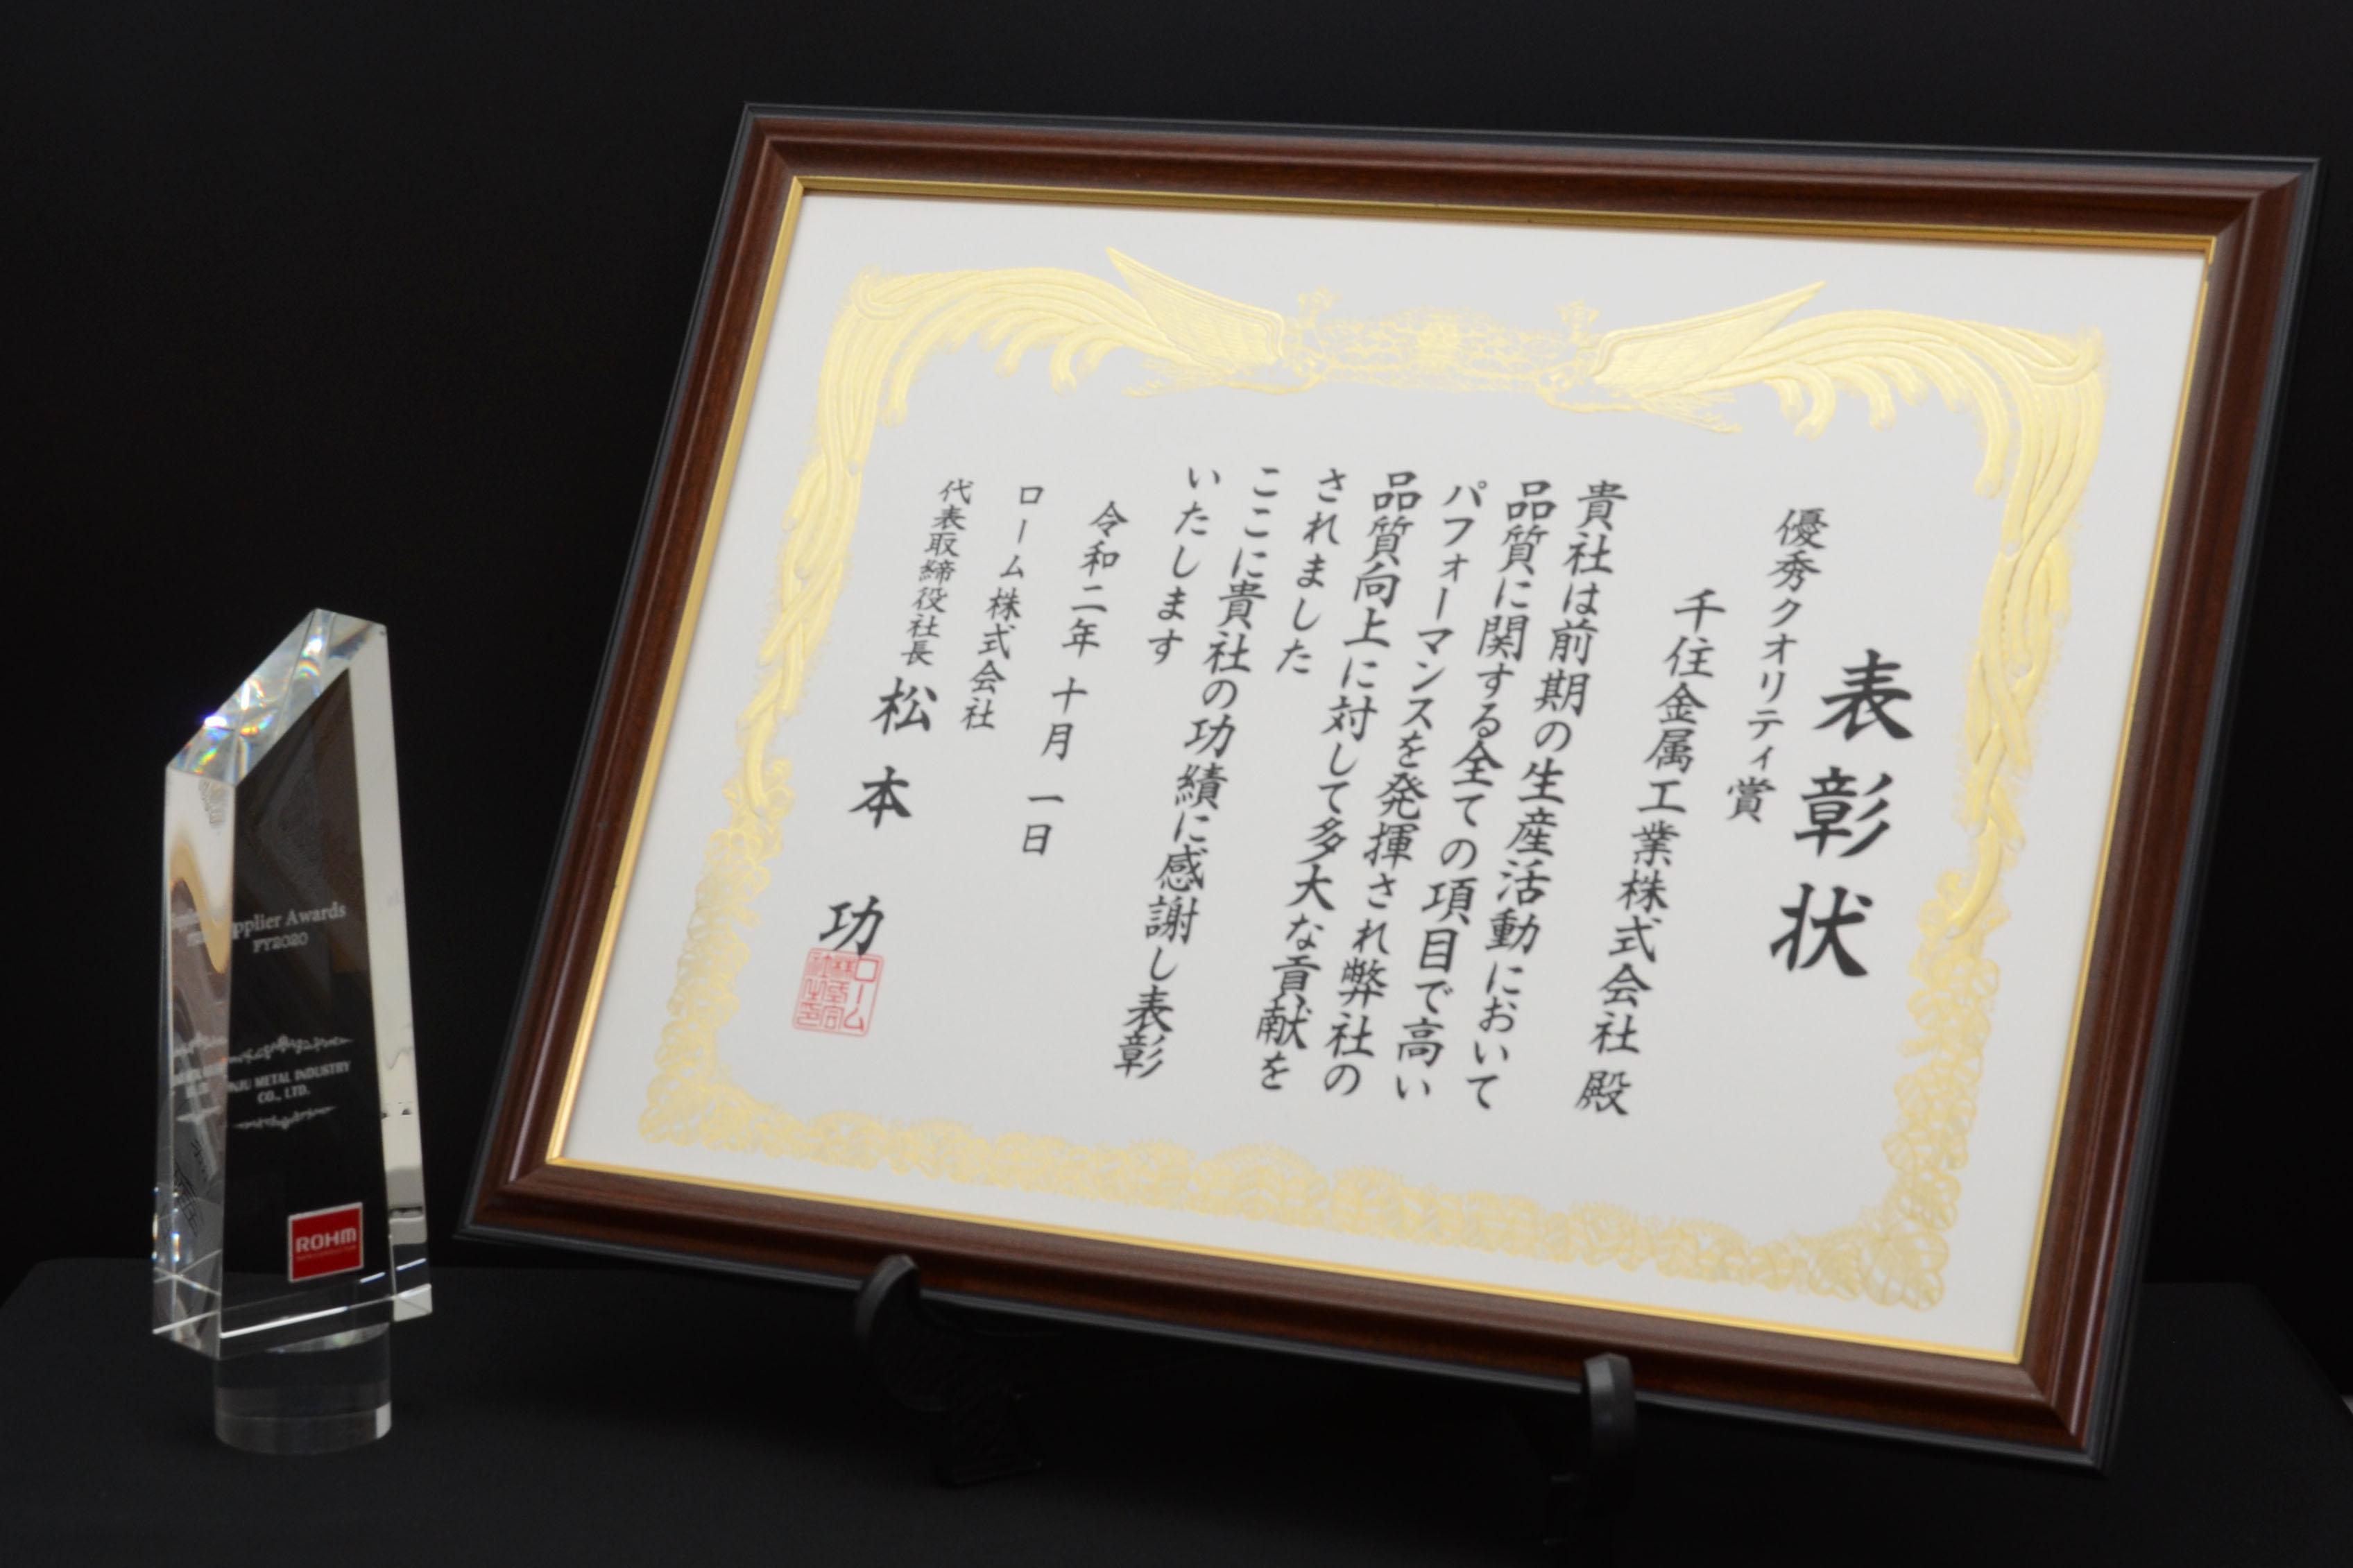 表彰状
優秀クオリティ賞
千住金属工業株式会社 殿
貴社は前期の生産活動において
品質に関する全ての項目で高い
パフォーマンスを発揮され弊社の
品質向上に対して多大な貢献を
されました
ここに貴社の功績に感謝し表彰
いたします
令和二年 十月 一日
ローム株式会社
代表取締役社長 松本 功
pplier Awards
FY2020
NJU METAL INDUSTRY
CO., LTD.
ROHM